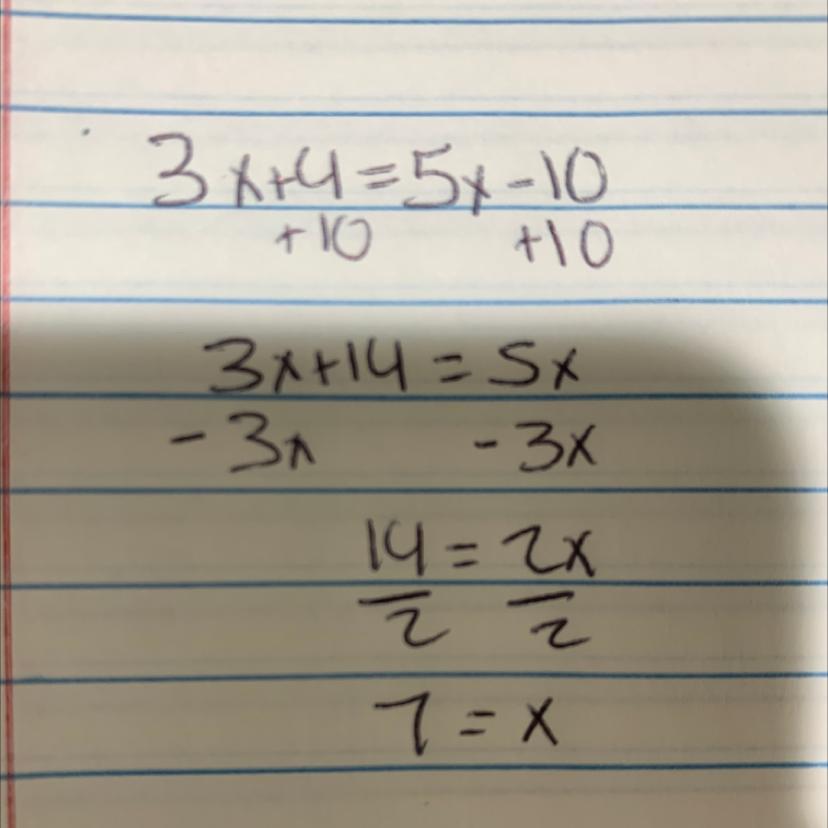 3x+4=5x-10
+10 +10
3x+14=5x
-3x -3x
14=2x
2 2
7=x